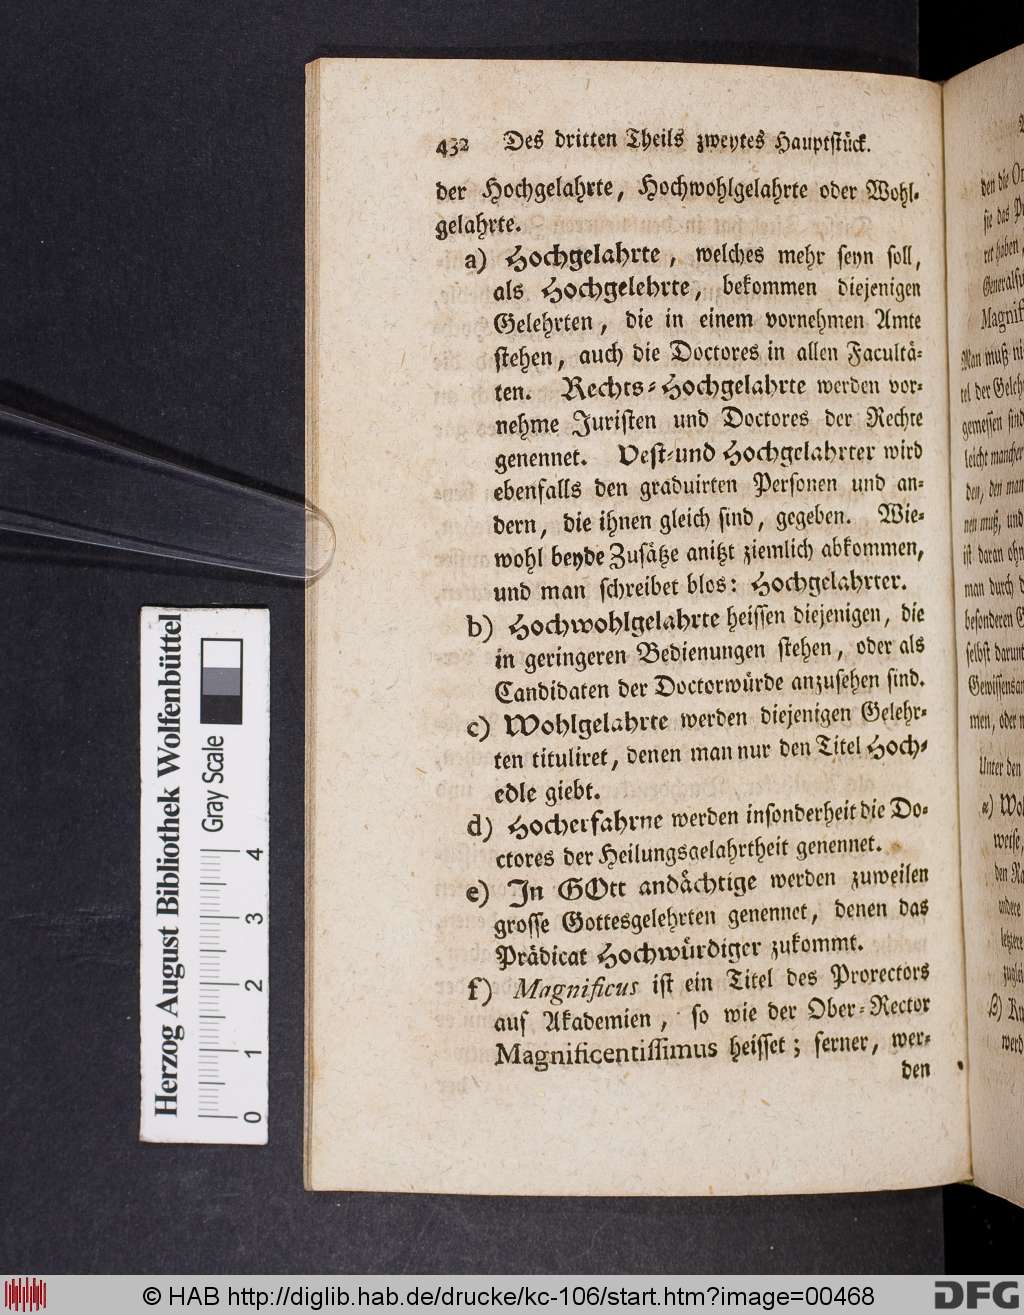 432 Des dritten Theils zweytes Hauptstück.
der Hochgelahrte, Hochwohlgelahrte oder Wohl-
gelahrte.
a) Hochgelahrte, welches mehr seyn soll,
als Hochgelehrte, bekommen diejenigen
Gelehrten, die in einem vornehmen Amte
stehen, auch die Doctores in allen Facultä-
ten. Rechts-Hochgelahrte werden vor-
nehme Juristen und Doctores der Rechte
genennet. Vest-und Hochgelahrter wird
ebenfalls den graduirten Personen und an-
dern, die ihnen gleich sind, gegeben. Wie-
wohl beyde Zusätze anitzt ziemlich abkommen,
und man schreibet blos: Hochgelahrter.
b) Hochwohlgelahrte heissen diejenigen, die
in geringeren Bedienungen stehen, oder als
Candidaten der Doctorwürde anzusehen sind.
c) Wohlgelahrte werden diejenigen Gelehr-
ten tituliret, denen man nur den Titel Hoch-
edle giebt.
d) Hocherfahrne werden insonderheit die Do-
ctores der Heilungsgelahrtheit genennet.
e) In GOtt andächtige werden zuweilen
grosse Gottesgelehrten genennet, denen das
Prädicat Hochwürdiger zukommt.
f) Magnificus ist ein Titel des Prorectors
auf Akademien, so wie der Ober-Rector
Magnificentissimus heisset; ferner, wer-
den
den die
sie das
ret haben,
Magnif
Man muß
tel der Geleh
gemessen sind
leicht mancher
den, den man
nen muß, und
ist daran
man durch
besonderen
selbst darunt
men, oder
Unter den
weise,
den
andere
letztere
werd
Herzog August Bibliothek Wolfenbüttel
Gray Scale
0 1 2 3 4
© HAB http://diglib.hab.de/drucke/kc-106/start.htm?image=00468
DFG